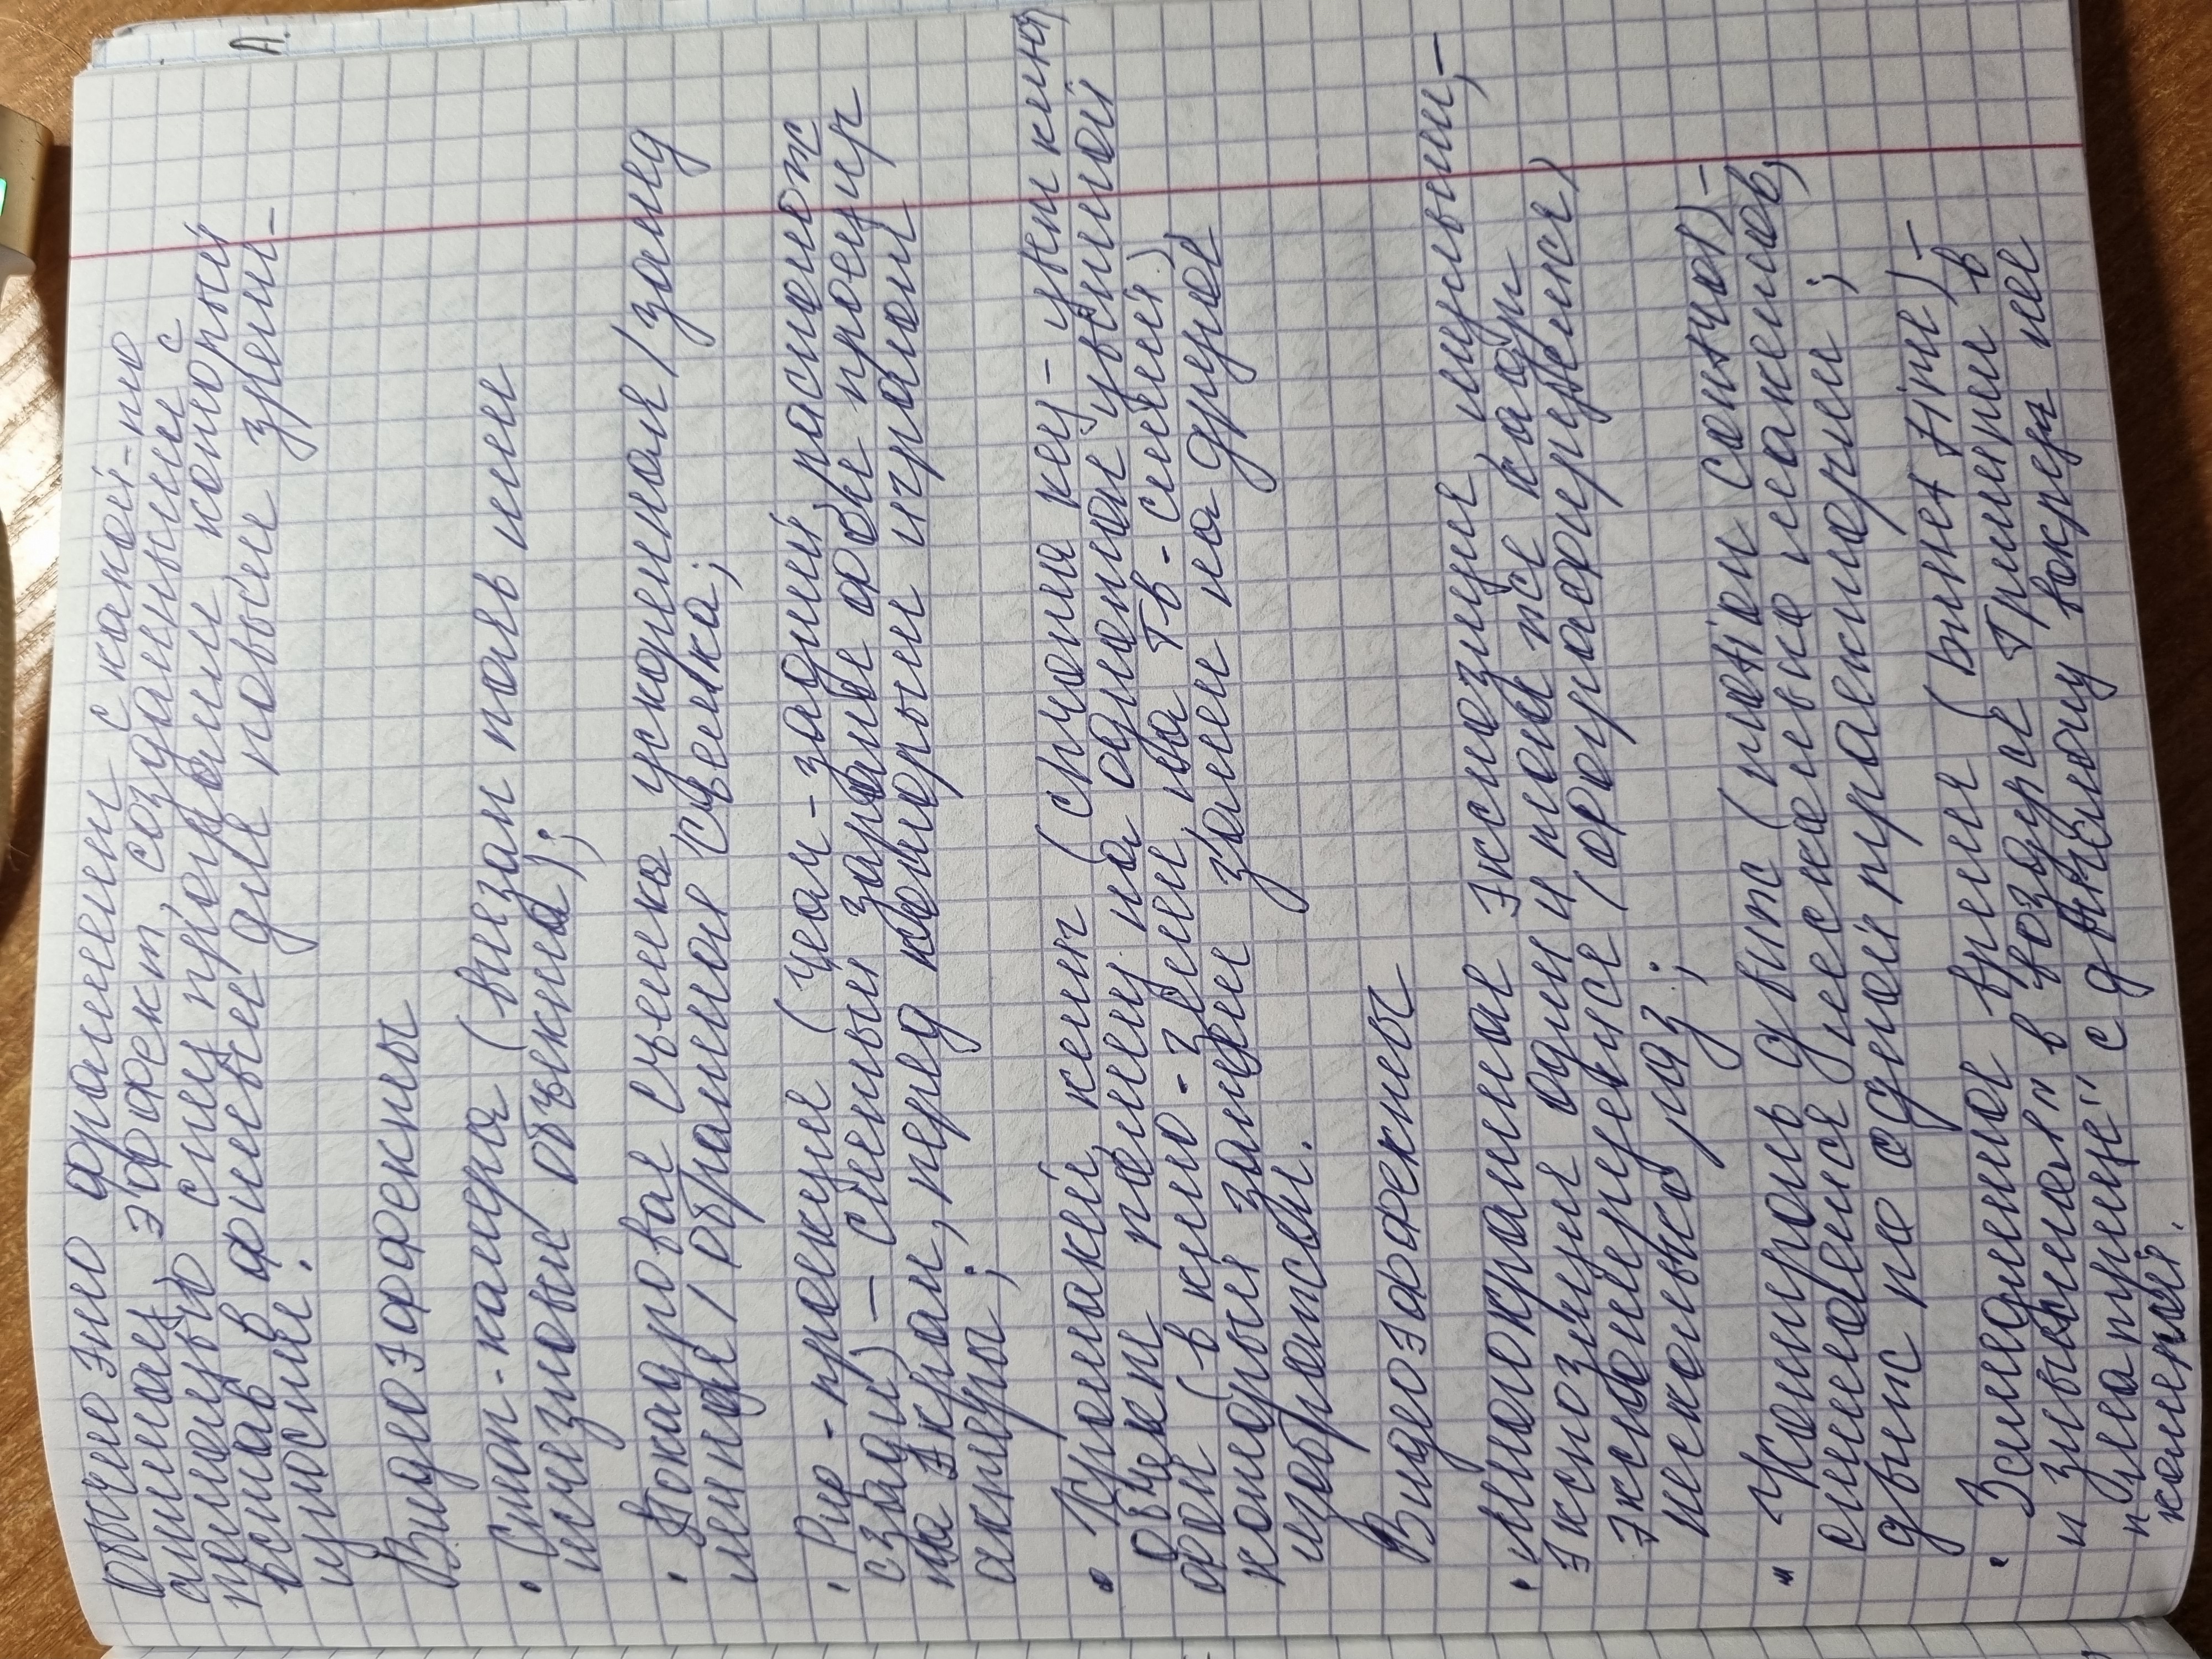 Обычно это фрагмент с какой-то
анимац, эффект, созданными с
помощью спец программ, который
встав в фильм для повыш зрели-
щности.
Видеоэффекты
• Стоп-камера (внезап появь или
исчезновые объекта);
• Покадровая съемка, ускоренная/замед
ленная/обратная съемка;
• Рир-проекция (rear-задний, располож
сзади) – снетый заранее фон проецир
на экран, перед которым играют
актеры;
• Хромакей, кеинг (chroma key – цвет ключ)
объект помещ на однотон цветной
фон (в кино - зелен, на ТВ - синий),
который затем замен на другое
изображен.
Видеоэффекты
• Многократная экспозиция, мульти, –
экспозиция один и тот же кадр
экспонируется (фографируется)
несколько раз;
• Контроль движ (motion control) –
снимается несколько макетов,
движ по одной траектории;
• Замедленное время (bullet time) –
"звыстшая" в воздухе Тринити в
"Матрице" с движ вокруг нее
камерой.
А.